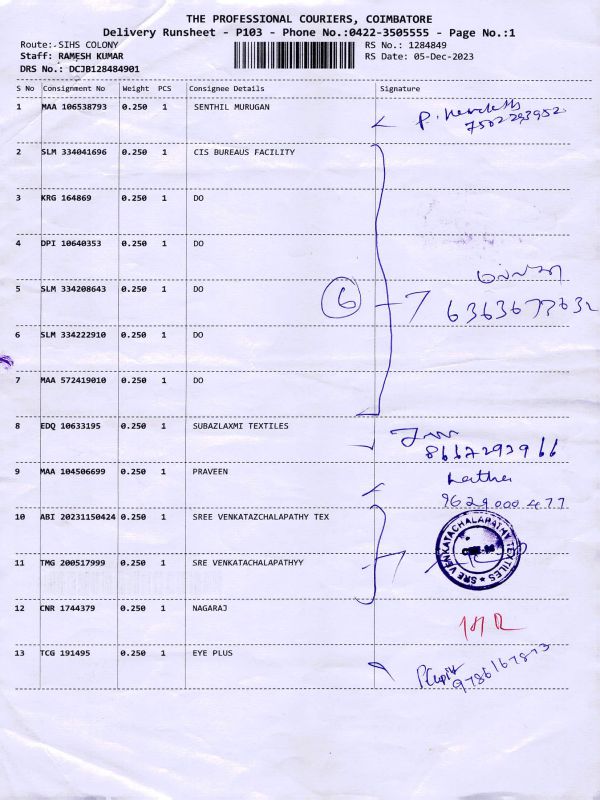 THE PROFESSIONAL COURIERS, COIMBATORE
Delivery Runsheet - P103 - Phone No.:0422-3505555 - Page No.:1
Route:-SIHS COLONY
Staff: RAMESH KUMAR
DRS No.: DCJB128484901
RS No.: 1284849
RS Date: 05-Dec-2023
S No Consignment No Weight PCS Consignee Details Signature
1 MAA 106538793 0.250 1 SENTHIL MURUGAN
7502293952
2 SLM 334041696 0.250 1 CIS BUREAUS FACILITY
3 KRG 164869 0.250 1 DO
4 DPI 10640353 0.250 1 DO
5 SLM 334208643 0.250 1 DO
6
6 SLM 334222910 0.250 1 DO
7 MAA 572419010 0.250 1 DO
8 EDQ 10633195 0.250 1 SUBAZLAXMI TEXTILES
8667293966
9 MAA 104506699 0.250 1 PRAVEEN
9629000477
10 ABI 20231150424 0.250 1 SREE VENKATAZCHALAPATHY TEX
SRE VENKATACHALAPATHY TEXTILES
11 TMG 200517999 0.250 1 SRE VENKATACHALAPATHYY
12 CNR 1744379 0.250 1 NAGARAJ
13 TCG 191495 0.250 1 EYE PLUS